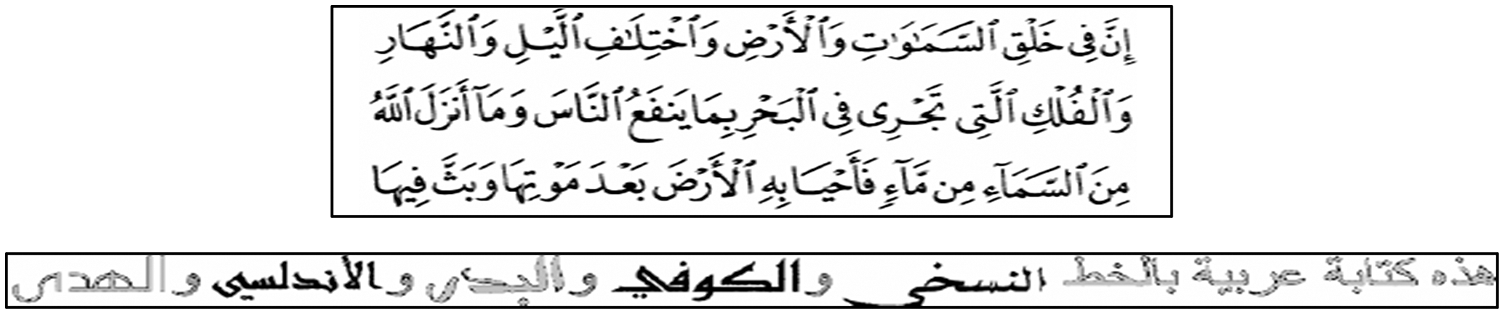 إِنَّ فِى خَلْقِ ٱلسَّمَٰوَٰتِ وَٱلْأَرْضِ وَٱخْتِلَٰفِ ٱلَّيْلِ وَٱلنَّهَارِ
وَٱلْفُلْكِ ٱلَّتِى تَجْرِى فِى ٱلْبَحْرِ بِمَا يَنفَعُ ٱلنَّاسَ وَمَآ أَنزَلَ ٱللَّهُ
مِنَ ٱلسَّمَآءِ مِن مَّآءٍ فَأَحْيَا بِهِ ٱلْأَرْضَ بَعْدَ مَوْتِهَا وَبَثَّ فِيهَا
هذه كتابة عربية بالخط النسخي والكوفي و والأندلسي والهدى